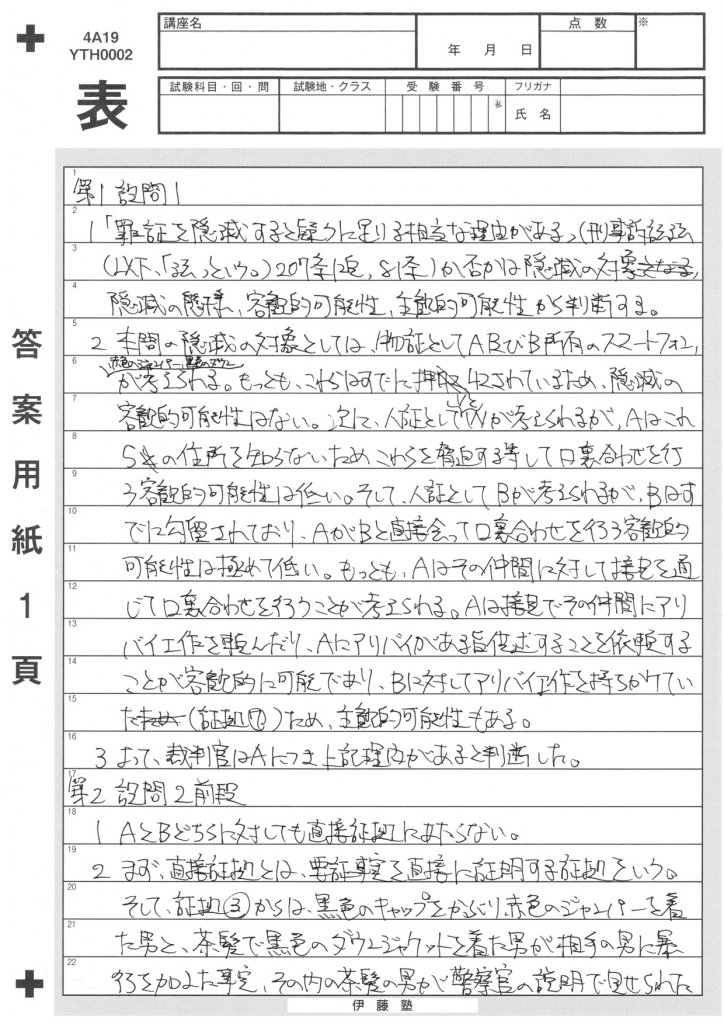 4A19
YTH0002
表
講座名
年 月 日
点 数
※
試験科目・回・問
試験地・クラス
受 験 番 号
フリガナ
氏 名
答案用紙1頁
1
第1 設問1
2
1 「罪証を隠滅すると疑うに足りる相当な理由がある」(刑事訴訟法
3
(以下、「法」という。)207条1項, 81条)か否かは隠滅の対象
4
隠滅の態様、客観的可能性、主観的可能性から判断する。
5
2 本問の隠滅の対象としては、物証としてA及びB所有のスマートフォン,
6
赤色のジャンパー、黒色のダウン
が考えられる。もっとも、これらはすでに押収されているため、隠滅の
7
客観的可能性はない。次に、人証としてVとWが考えられるが、Aはこれ
8
らの住所を知らないため、これらを脅迫する等して口裏合わせを行
9
う客観的可能性は低い。そして、人証としてBが考えられるが、Bはす
10
でに勾留されており、AがBと直接会って口裏合わせを行う客観的
11
可能性は極めて低い。もっとも、Aはその仲間に対して接見を通
12
じて口裏合わせを行うことが考えられる。Aは接見でその仲間にアリ
13
バイ工作を頼んだり、Aにアリバイがある旨供述することを依頼する
14
ことが客観的に可能であり、Bに対してアリバイ工作を持ちかけてい
15
た(証拠⑦)ため、主観的可能性もある。
16
3 よって、裁判官はAにつき上記理由があると判断した。
17
第2 設問2前段
18
1 AとBどちらに対しても直接証拠にあたらない。
19
2 まず、直接証拠とは、要証事実を直接に証明する証拠をいう。
20
そして、証拠③からは、黒色のキャップをかぶり赤色のジャンパーを着
21
た男と、茶髪で黒色のダウンジャケットを着た男が相手の男に暴
22
行を加えた事実、その内の茶髪の男が警察官の説明で見せられた
伊 藤 塾